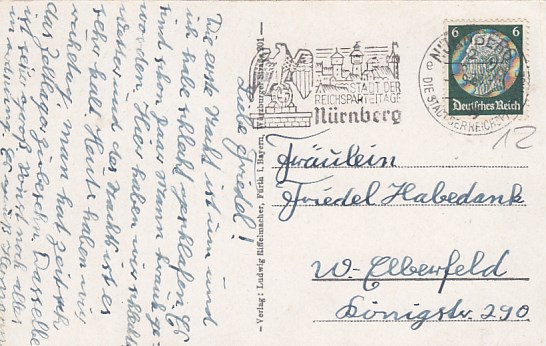 Liebe Friedel!
Die erste Nacht ist um und
ich habe schlecht geschlafen. Es
sind schon zwei Mann krank ge-
worden. Hier haben wir schlechtes
Wetter und des Nachts ist es
sehr kalt. Heute haben wir
man hat Zeit sich
das Zeltlager Dasselbe
ist sehr groß sonst noch alles
in Ordnung. Hermann
Verlag: Ludwig Riffelmacher, Fürth i. Bayern, Würzburger Straße
STADT DER
REICHSPARTEITAGE
Nürnberg
NÜRNBERG
DIE STADT DER REICHSP
6 6
Deutsches Reich
12
Fräulein
Friedel Habedank
W.-Elberfeld
Königstr. 290